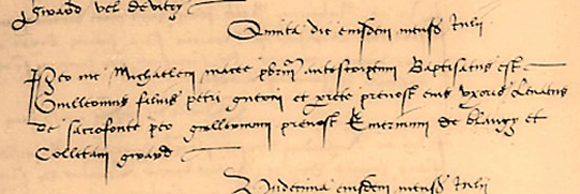 Gwiard vel de vitry
Quinta die eiusdem mensis Julii
Per me Michaelem macee pbrum antescriptum Baptisatus est
Guillermus filius petri guerin et perrete prevost eius uxoris Levatus
de sacrofonte per guillermum prevost Emermum de blangy et
Colletam gwiard
Undecima eiusdem mensis Julii